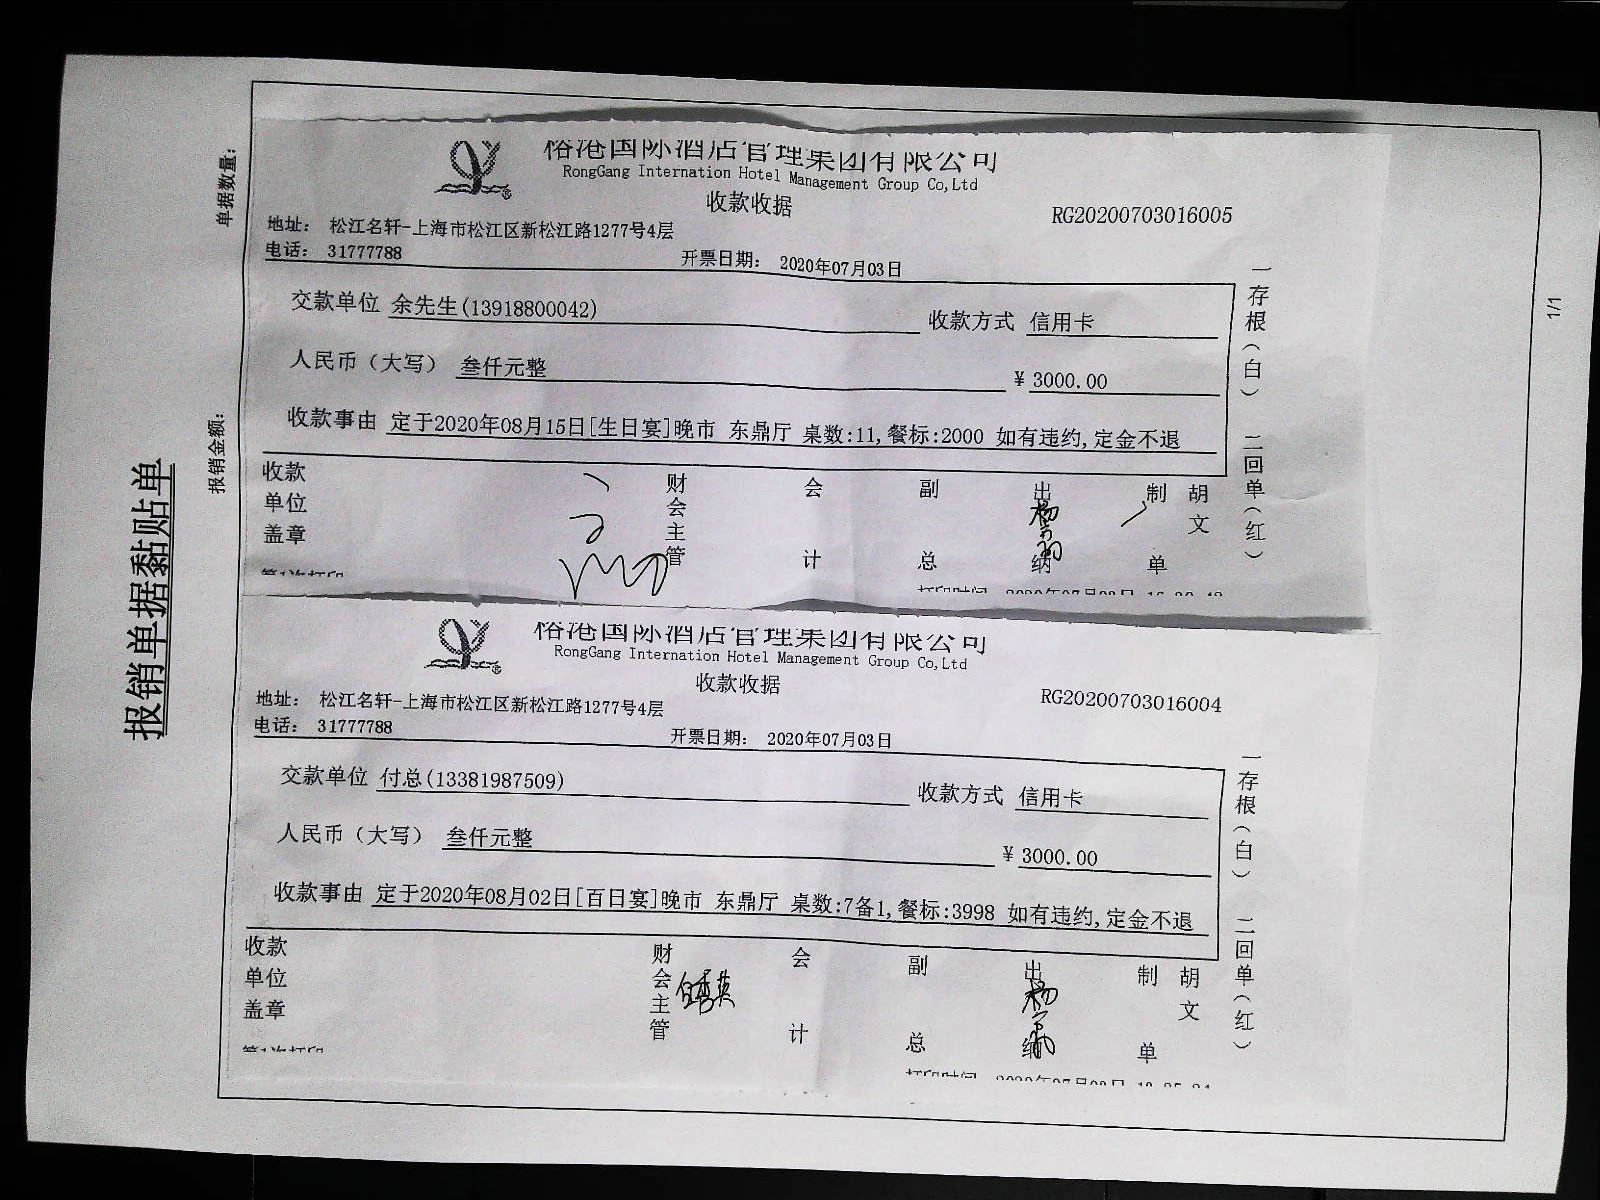 报销单据黏贴单
单据数量：
报销金额：
1/1
裕港国际酒店管理集团有限公司
RongGang Internation Hotel Management Group Co,Ltd
收款收据
RG20200703016005
地址： 松江名轩-上海市松江区新松江路1277号4层
电话： 31777788
开票日期： 2020年07月03日
交款单位 余先生(13918800042)
收款方式 信用卡
人民币（大写） 叁仟元整
¥ 3000.00
收款事由 定于2020年08月15日[生日宴]晚市 东鼎厅 桌数:11,餐标:2000 如有违约,定金不退
收款单位盖章
财会主管
会计
副总
出纳
制单
胡文
一存根（白） 二回单（红）
第1次打印
打印时间
裕港国际酒店管理集团有限公司
RongGang Internation Hotel Management Group Co,Ltd
收款收据
RG20200703016004
地址： 松江名轩-上海市松江区新松江路1277号4层
电话： 31777788
开票日期： 2020年07月03日
交款单位 付总(13381987509)
收款方式 信用卡
人民币（大写） 叁仟元整
¥ 3000.00
收款事由 定于2020年08月02日[百日宴]晚市 东鼎厅 桌数:7备1,餐标:3998 如有违约,定金不退
收款单位盖章
财会主管
会计
副总
出纳
制单
胡文
一存根（白） 二回单（红）
第1次打印
打印时间